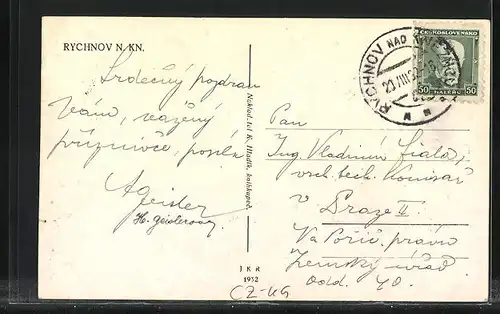 RYCHNOV N. KN.
Srdečný pozdrav
Vám, vážený
příznivce, posílá
AGeisler
H. Geislerová
Naklad. tel K. Hladík, knihkupec.
JKR
1932
CZ-UG
RYCHNOV NAD
ČESKOSLOVENSKO
50 HALÉŘŮ 50
Pan
Ing. Vladimír Fiala,
vrch. tech. komisař
v Praze II.
Na Poříč. právu
Zemský úřad
Odd. 40.